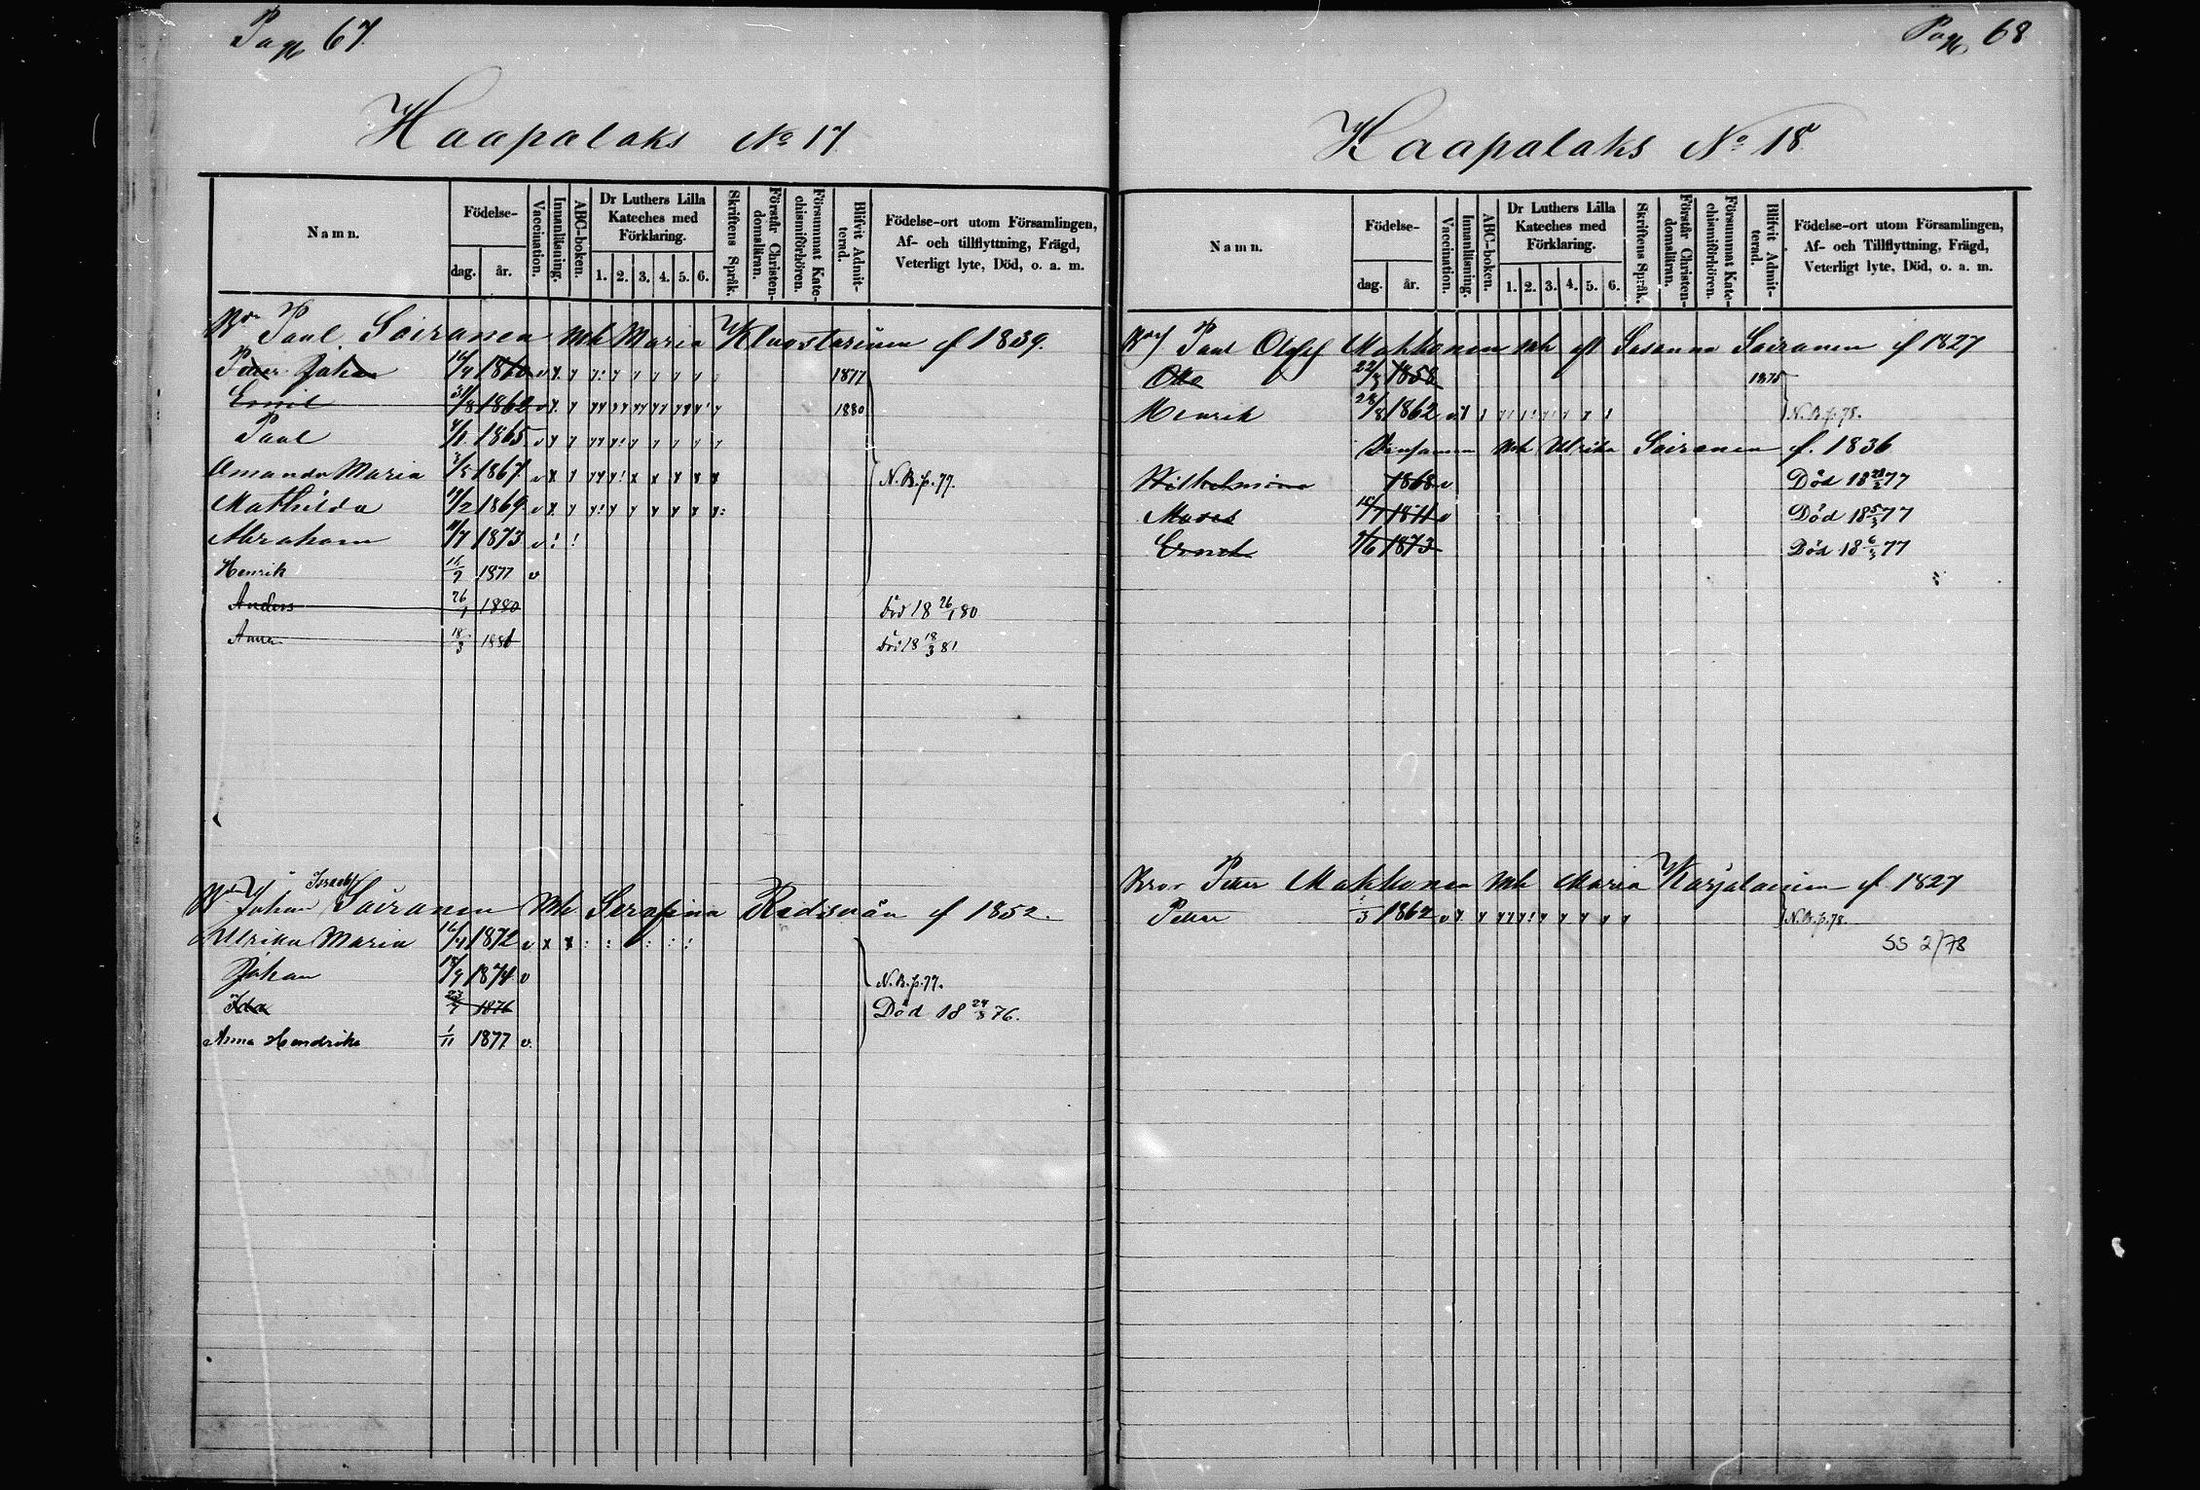 Pag 67
Haapalaks No 17
Namn.
Födelse-
dag.
år.
Vaccination.
Innanläsning.
ABC-boken.
Dr Luthers Lilla
Kateches med
Förklaring.
1. 2. 3. 4. 5. 6.
Skriftens Språk.
Förstår Christen-
domsläran.
Försummat Kate-
chismiförhören.
Blifvit Admit-
terad.
Födelse-ort utom Församlingen,
Af- och tillflyttning, Frägd,
Veterligt lyte, Död, o. a. m.
Paul Soiranen Mh Maria f 1839.
Petter Johan 1860 v 1877
Emil 31/8 1862 v 1880
Paul 1865 v
Amanda Maria 3/5 1867 v N.B.p.77.
Mathilda 1869 v
Abraham 11/7 1873 v ! !
Henrik 1877 v
Anders 26/1 1880 död 18 26/1 80
Anna 18/3 1881 död 18 18/3 81
Johan Soiranen Mh Serafina f 1852.
Ulrika Maria 1872 v
Johan 1874 v N.B.p.77.
Ida 1876 Död 18 24/8 76.
Anna Hendrika 1/11 1877 v.
Pag 68
Haapalaks No 18
Namn.
Födelse-
dag.
år.
Vaccination.
Innanläsning.
ABC-boken.
Dr Luthers Lilla
Kateches med
Förklaring.
1. 2. 3. 4. 5. 6.
Skriftens Språk.
Förstår Christen-
domsläran.
Försummat Kate-
chismiförhören.
Blifvit Admit-
terad.
Födelse-ort utom Församlingen,
Af- och Tillflyttning, Frägd,
Veterligt lyte, Död, o. a. m.
Paul Makkonen Mh Susanna Soiranen f 1827
Otto 1858 1875
Henrik 28/8 1862 N.B.p.78.
Benjamin Mh Ulrika Soiranen f. 1836
Wilhelmina 1868 v Död 18 77
Moses 1871 v Död 18 5/3 77
1873 Död 18 6/3 77
Petter Makkonen Mh Maria Karjalainen f 1827
Petter 1862 v N.B.p.78.
SS 2/78